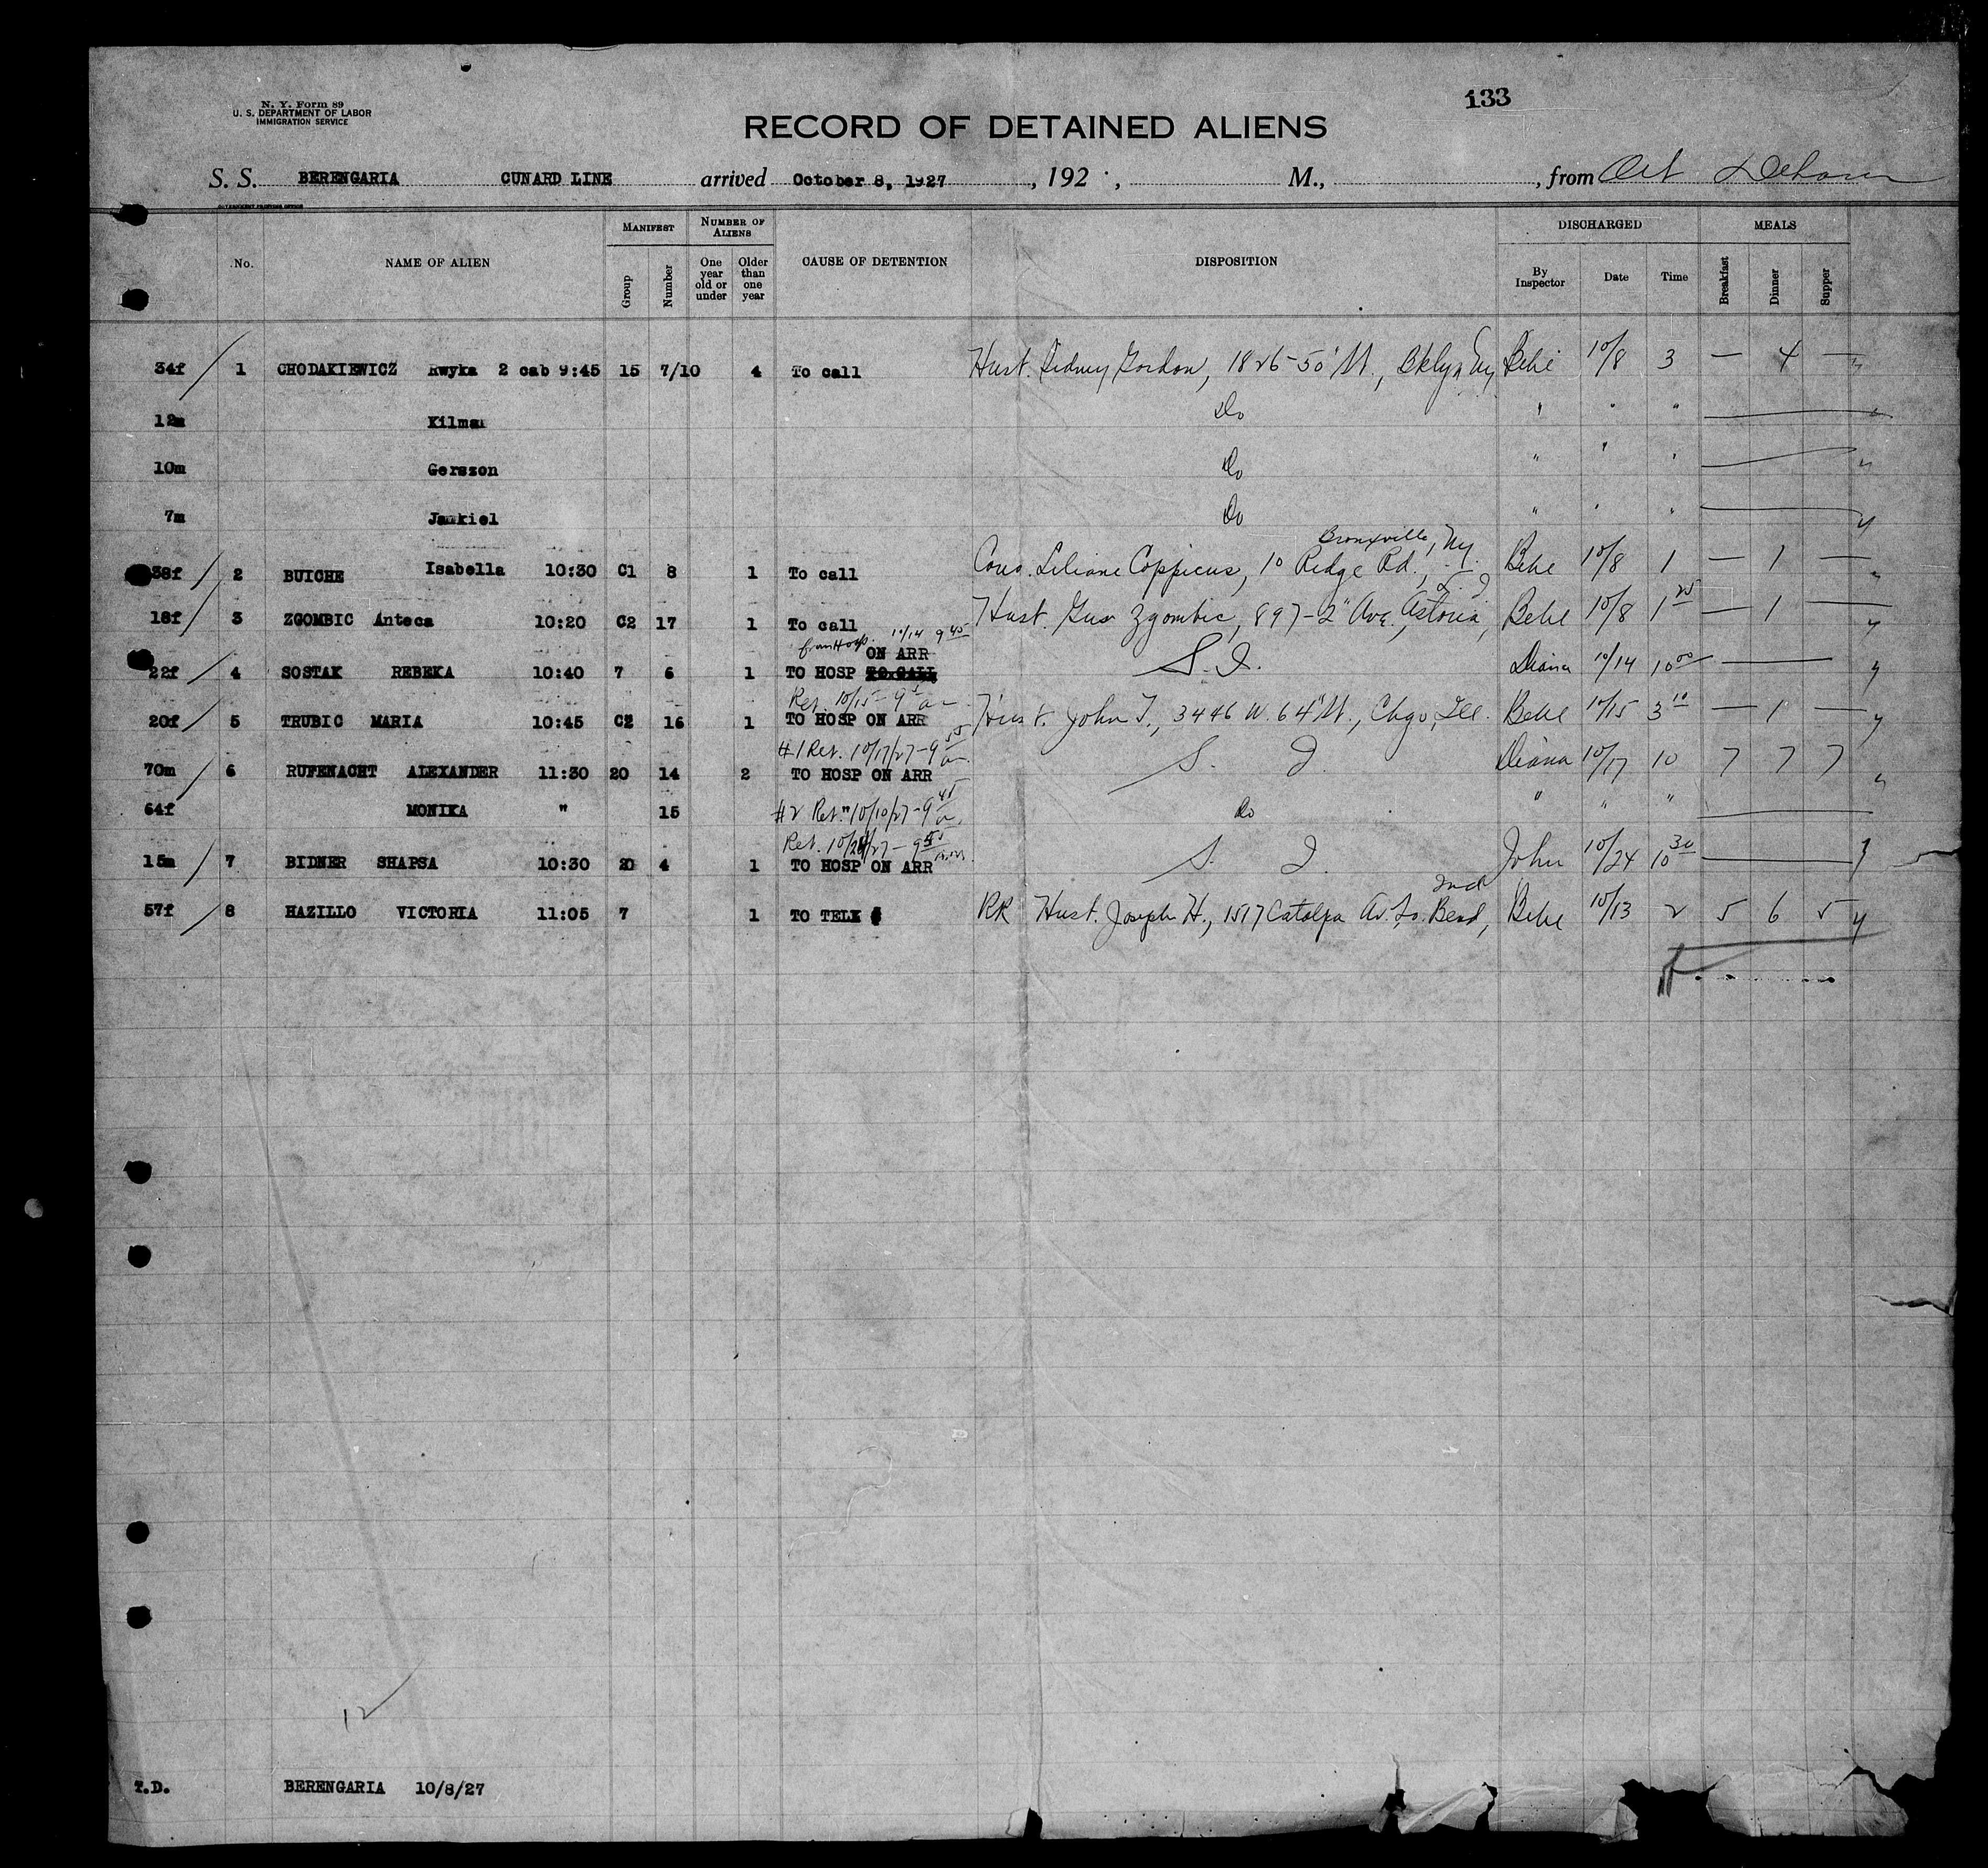 133
N. Y. Form 89
U. S. DEPARTMENT OF LABOR
IMMIGRATION SERVICE
RECORD OF DETAINED ALIENS
S. S. BERENGARIA CUNARD LINE arrived October 8, 1927, 192 , M., , from
GOVERNMENT PRINTING OFFICE
No. NAME OF ALIEN MANIFEST Group Number NUMBER OF ALIENS One year old or under Older than one year CAUSE OF DETENTION DISPOSITION DISCHARGED By Inspector Date Time MEALS Breakfast Dinner Supper
34f 1 CHODAKIEWICZ Rwyka 2 cab 9:45 15 7/10 4 To call Hust. Sidney Gordon, 1826-50' St., Bklyn Ny Behe 10/8 3 — 4 —
12m Kilman Do " " "
10m Gerszon Do " " "
7m Jankiel Do " " "
Bronxville, Ny.
38f 2 BUICHE Isabella 10:30 C1 8 1 To call Cous. Liliane Coppicus, 10 Ridge Rd., Behe 10/8 1 — 1 —
L. I
18f 3 ZGOMBIC Anteca 10:20 C2 17 1 To call Hust. Gus Zgombic, 897-2" Ave. Astoria, Behe 10/8 1 25 — 1 —
from Hosp. 10/14 9 45
ON ARR
22f 4 SOSTAK REBEKA 10:40 7 6 1 TO HOSP TO CALL S. I. Diana 10/14 10 00
Ret. 10/15 - 9 am
20f 5 TRUBIC MARIA 10:45 C2 16 1 TO HOSP ON ARR Hust. John T., 3446 W. 64" St., Chgo, Ill. Behe 10/15 3 10 — 1 —
#1 Ret. 10/17/27 - 9 55 a
70m 6 RUFENACHT ALEXANDER 11:30 20 14 2 TO HOSP ON ARR S. I. Diana 10/17 10 7 7 7
64f MONIKA " 15 #2 Ret. 10/10/27 - 9 45 a. Do " " "
Ret. 10/24/27 - 9 55 a.m.
15m 7 BIDNER SHAPSA 10:30 20 4 1 TO HOSP ON ARR S. I. John 10/24 10 30
Ind
57f 8 HAZILLO VICTORIA 11:05 7 1 TO TELX RR Hust. Joseph H., 1517 Catalpa Av. So. Bend, Behe 10/13 2 5 6 5
12
T.D. BERENGARIA 10/8/27